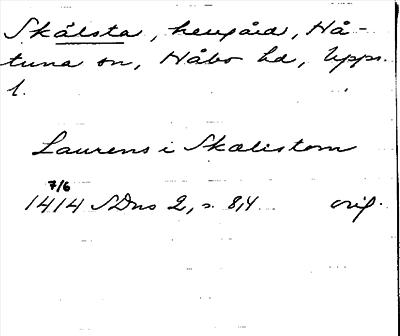 Skälsta, herrgård, Hå-
tuna sn, Håbo hd, Upps.
l.
Laurens i Skælistom
7/6
1414 SDns 2, s. 814 orig.